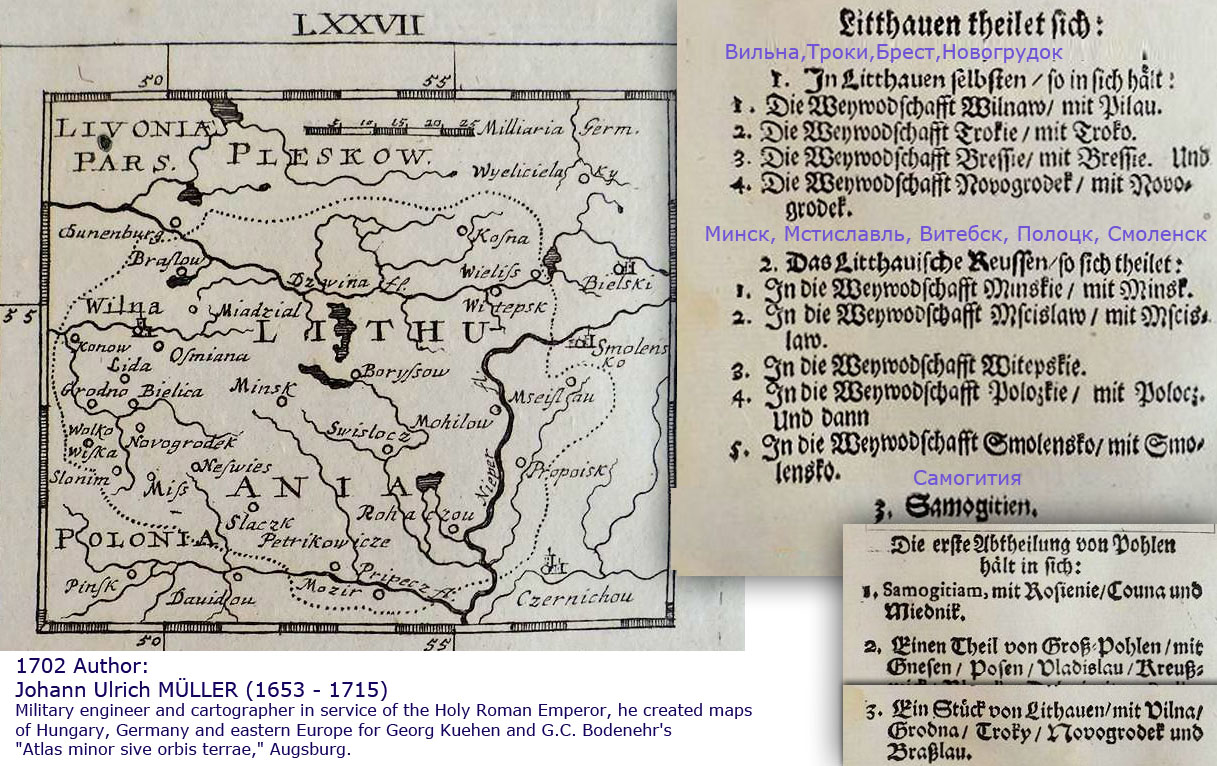 LXXVII
50
55
LIVONIÆ
PARS.
5 10 15 20 25 Milliaria Germ.
PLESKOW.
Wyeliciela
Ky
Dunenburg
Kosna
Braslou
Wieliss
Bielski
Dzwina fl.
Witepsk
Wilna
Miadzial
55
LITHU
Konow
Osmiana
Smolens
ko
Lida
Boryssow
Grodno
Bielica
Minsk
Mseislau
Mohilow
Wolko
wiska
Novogrodek
Swislocz
Neswies
Propoisk
Slonim
Miss
ANIA
Nieper
Slaczk
Rohaczou
POLONIA
Petrikowicze
Pripecz
Pinsk
Davidou
Mozir
Czernichou
50
55
Litthauen theilet sich:
Вильна,Троки,Брест,Новогрудок
1. In Litthauen selbsten / so in sich hält:
1. Die Weywodschafft Wilnaw/ mit Pilau.
2. Die Weywodschafft Trokie / mit Troko.
3. Die Weywodschafft Bressie/ mit Bressie. Und
4. Die Weywodschafft Novogrodek / mit Novo-
grodek.
Минск, Мстиславль, Витебск, Полоцк, Смоленск
2. Das Litthauische Reussen/so sich theilet:
1. In die Weywodschafft Minskie / mit Minsk.
2. In die Weywodschafft Mscislaw / mit Mscis-
law.
3. In die Weywodschafft Witepskie.
4. In die Weywodschafft Polozkie / mit Polocz.
Und dann
5. In die Weywodschafft Smolensko/ mit Smo-
lensko.
Самогития
3. Samogitien.
Die erste Abtheilung von Pohlen
hält in sich:
1, Samogitiam, mit Rosienie/Couna und
Miednik.
2, Einen Theil von Groß-Pohlen / mit
Gnesen / Posen / Uladislau / Kreuß-
3. Ein Stück von Lithauen/mit Vilna/
Grodna / Troky / Novogrodek und
Braßlau.
1702 Author:
Johann Ulrich MÜLLER (1653 - 1715)
Military engineer and cartographer in service of the Holy Roman Emperor, he created maps
of Hungary, Germany and eastern Europe for Georg Kuehen and G.C. Bodenehr's
"Atlas minor sive orbis terrae," Augsburg.